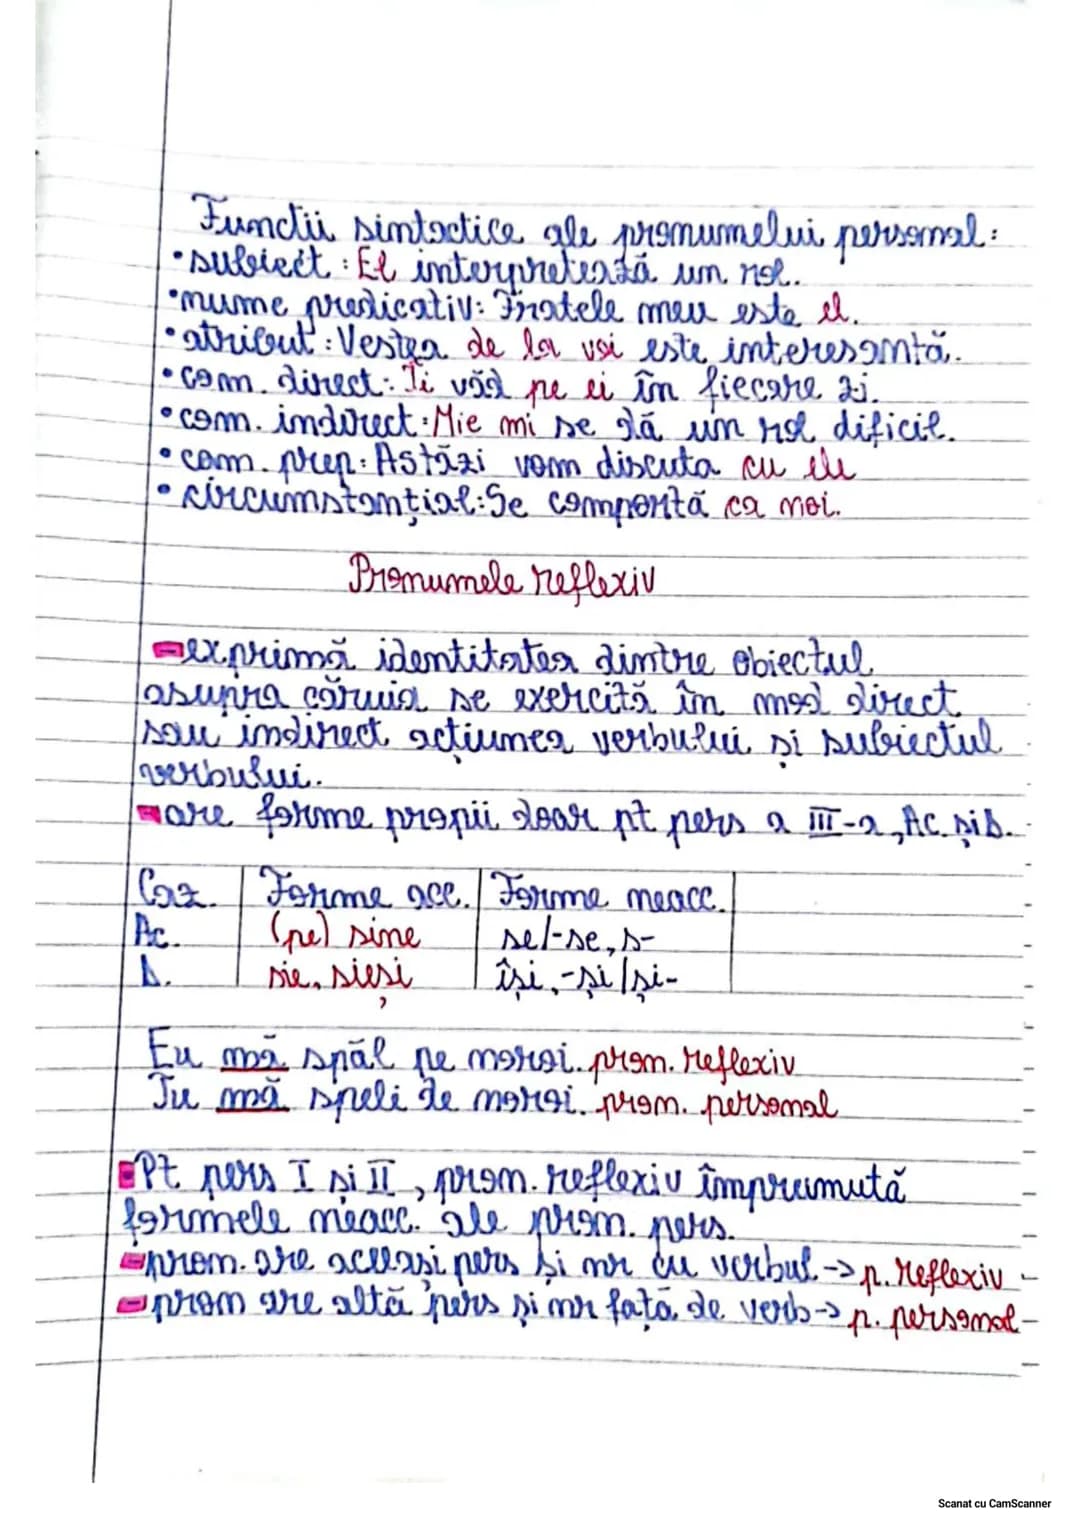 Funcții sintactice ale pronumelui personal:
•subiect: El interpretează un rol.
•nume predicativ: Fratele meu este el.
•atribut: Vestea de la voi este interesantă.
•com. direct: Îi văd pe ei în fiecare zi.
•com. indirect: Mie mi se dă un rol dificil.
•com. prep: Astăzi vom discuta cu ele
•circumstanțial: Se comportă ca noi.
Pronumele reflexiv
-exprimă identitatea dintre obiectul
asupra căruia se exercită în mod direct
sau indirect acțiunea verbului și subiectul
verbului.
-are forme propii doar pt pers a III-a, Ac. și D.
Caz. Forme acc. Forme neacc.
Ac. (pe) sine se/-se, s-
D. sie, sieși își, -și/și-
Eu mă spăl pe maroi. pron. reflexiv
Tu mă speli de maroi. pron. personal
-Pt pers I și II, pron. reflexiv împrumută
formele neacc. ale pron. pers.
-pron. are aceeași pers și nr cu verbul -> p. reflexiv
-pron are altă pers și nr față de verb -> p. personal
Scanat cu CamScanner